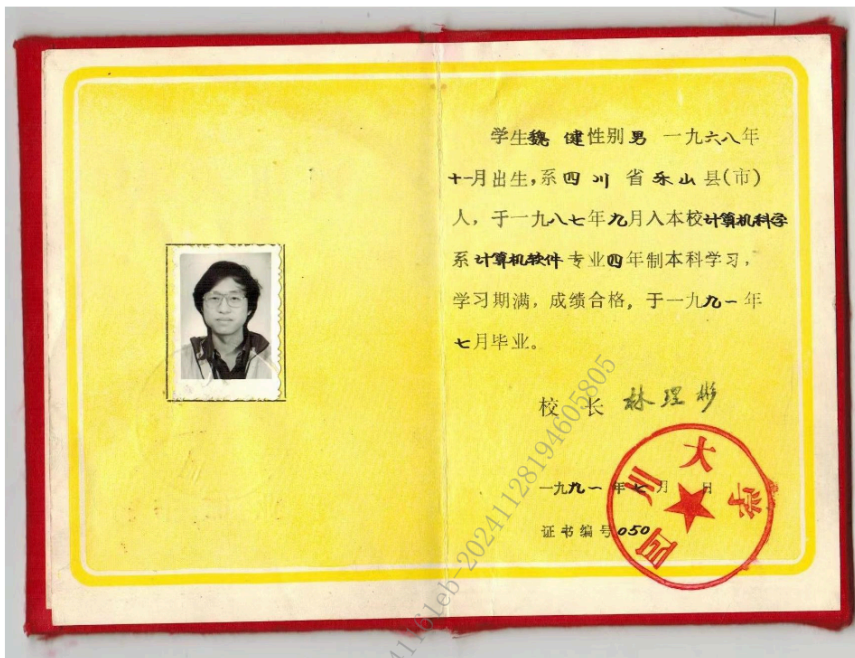 学生魏 健性别男 一九六八年
十一月出生,系四川省乐山县(市)
人,于一九八七年九月入本校计算机科学
系计算机软件专业四年制本科学习,
学习期满,成绩合格,于一九九一年
七月毕业。
校 长 林理彬
一九九一年七月 日
证书编号050
四川大学